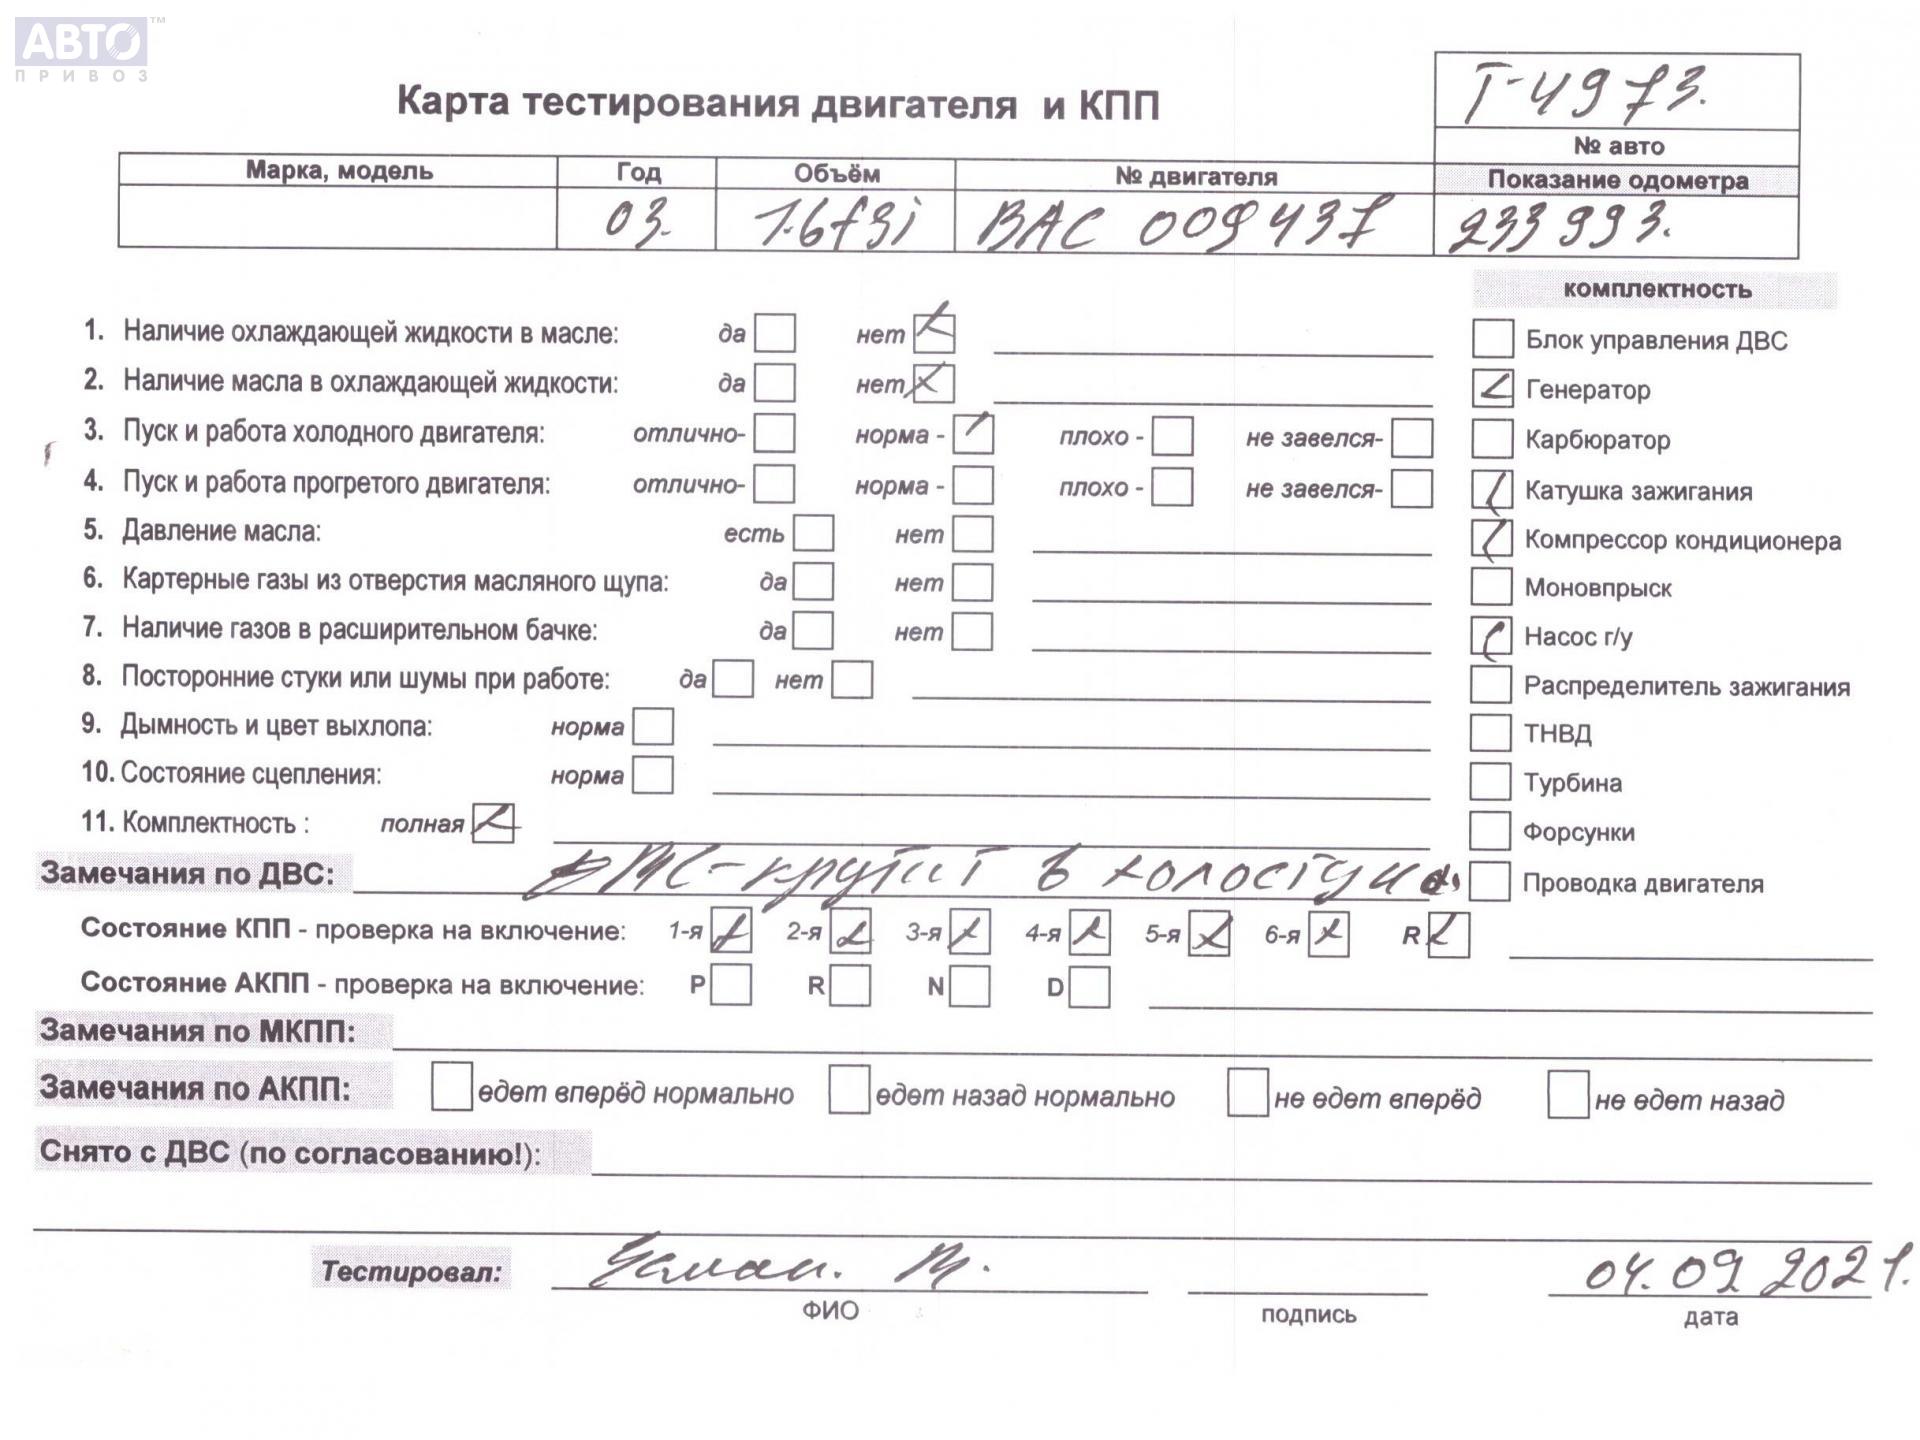 АВТО™
ПРИВОЗ
Т-4973.
Карта тестирования двигателя и КПП
№ авто
Марка, модель Год Объём № двигателя Показание одометра
03. 1.6fsi BAC 009437 233993.
комплектность
1. Наличие охлаждающей жидкости в масле: да нет
Блок управления ДВС
2. Наличие масла в охлаждающей жидкости: да нет
Генератор
3. Пуск и работа холодного двигателя: отлично- норма - плохо - не завелся-
Карбюратор
4. Пуск и работа прогретого двигателя: отлично- норма - плохо - не завелся-
Катушка зажигания
5. Давление масла: есть нет
Компрессор кондиционера
6. Картерные газы из отверстия масляного щупа: да нет
Моновпрыск
7. Наличие газов в расширительном бачке: да нет
Насос г/у
8. Посторонние стуки или шумы при работе: да нет
Распределитель зажигания
9. Дымность и цвет выхлопа: норма
ТНВД
10. Состояние сцепления: норма
Турбина
11. Комплектность : полная
Форсунки
Замечания по ДВС: крутит в холостую
Проводка двигателя
Состояние КПП - проверка на включение: 1-я 2-я 3-я 4-я 5-я 6-я R
Состояние АКПП - проверка на включение: P R N D
Замечания по МКПП:
Замечания по АКПП: едет вперёд нормально едет назад нормально не едет вперёд не едет назад
Снято с ДВС (по согласованию!):
Тестировал: Усман. 04.09 2021.
ФИО подпись дата